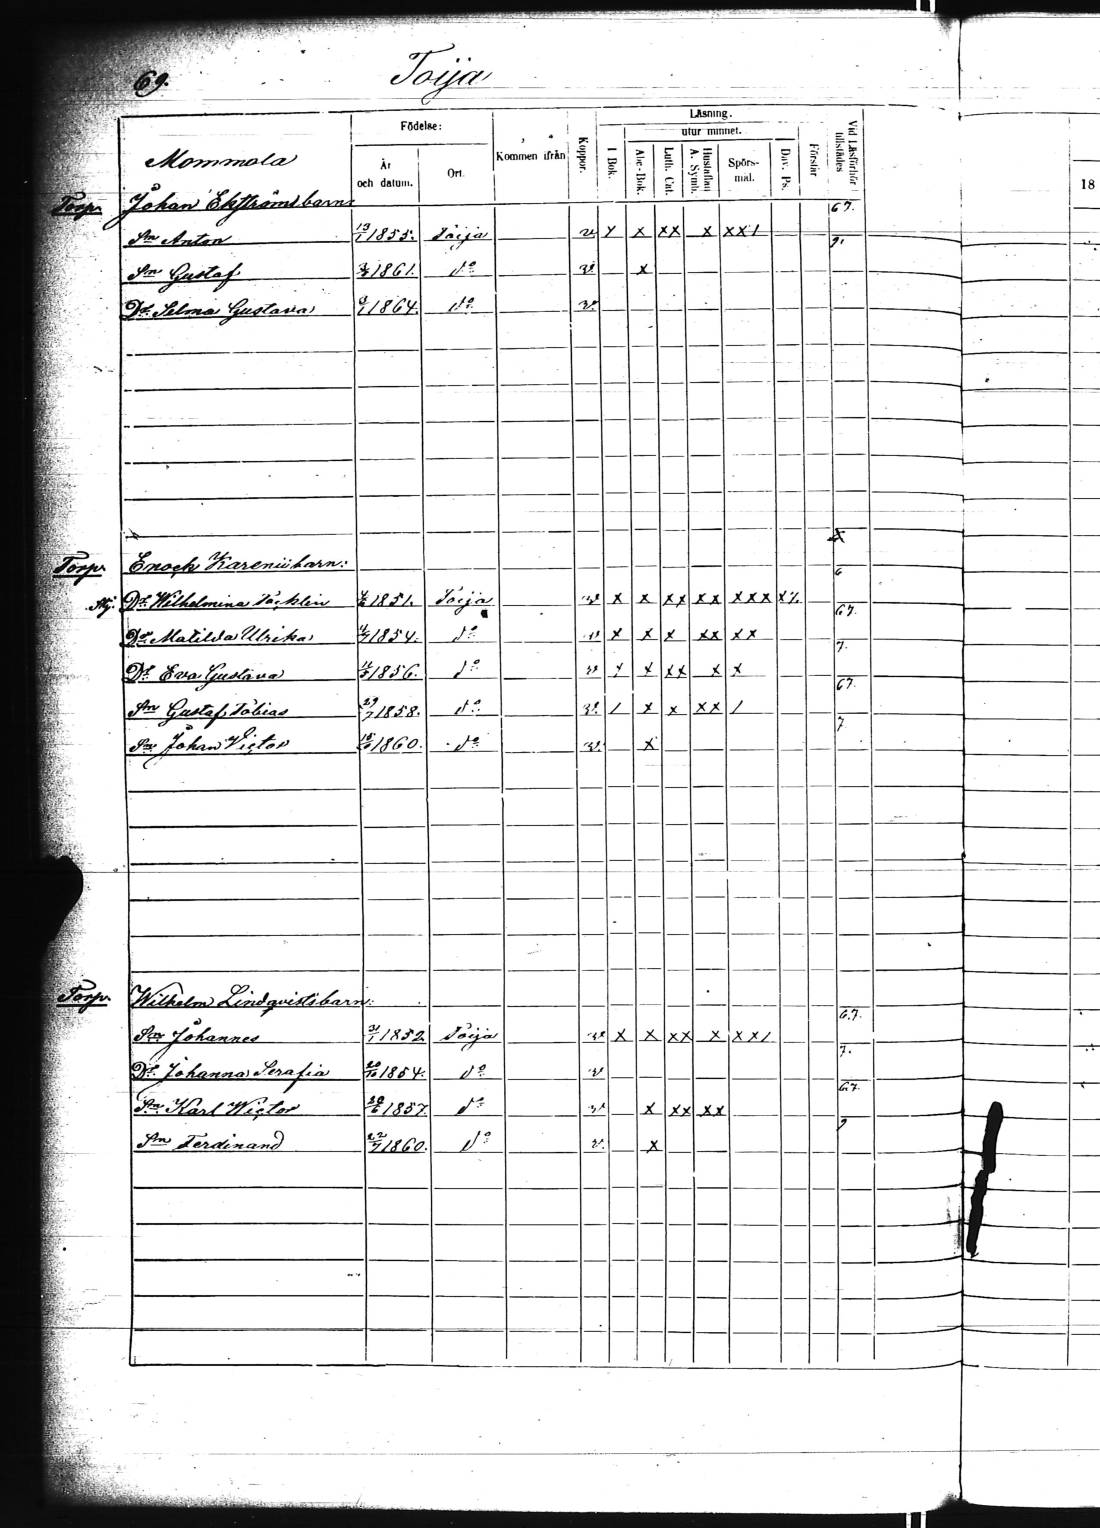 69. Toija
Läsning.
Födelse: utur minnet.
Mommola År och datum. Ort. Kommen ifrån Koppor. I Bok. Abc-Bok. Luth. Cat. Hustaflan A. Symb. Spörsmål. Dav. Ps. Förstår Vid Läsförhör tillstädes
18
Torp. Johan Ekströms barn: 67.
Sn Anton 13/1 1855. Toija v x xx x xx/
Sn Gustaf 1861. do v. x
Dr Selma Gustava 1864. do v.
Torp. Enoch Karenii barn:
6
Dr Wilhelmina Täcklin 1851. Toija v x x xx xx xxx
67.
Dr Matilda Ulrika 1854. do v x x x xx xx
7.
Dr Eva Gustava 1856. do v x xx x x
67.
Sn Gustaf Tobias 29/7 1858. do v. / x x xx /
7
Sn Johan Victor 1860. do v. x
Torp. Wilhelm Lindqvists barn:
67.
Sn Johannes 31/1 1852 Toija v x x xx x xx/
7.
Dr Johanna Serafia 20/10 1854. do v
67
Sn Karl Victor 1857. do v x xx xx
7
Sn Ferdinand 22/7 1860. do v. x